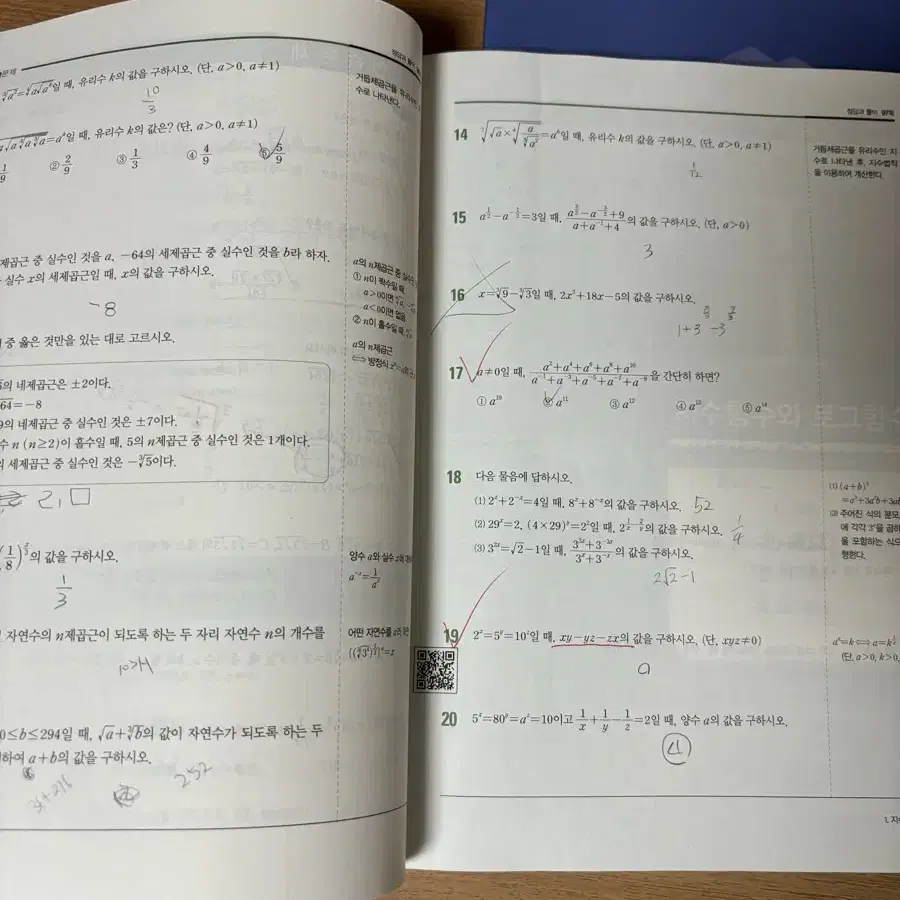 문제
정답과 풀이
∛a²=∜a√aᵏ일 때, 유리수 k의 값을 구하시오. (단, a>0, a≠1)
10/3
거듭제곱근을 유리수
수로 나타낸다.
=aᵏ일 때, 유리수 k의 값은? (단, a>0, a≠1)
1/9 ② 2/9 ③ 1/3 ④ 4/9 ⑤ 5/9
제곱근 중 실수인 것을 a, −64의 세제곱근 중 실수인 것을 b라 하자.
실수 x의 세제곱근일 때, x의 값을 구하시오.
-8
a의 n제곱근 중 실수인
① n이 짝수일 때
a>0이면
a<0이면 없음
② n이 홀수일 때
a의 n제곱근
⟺ 방정식
중 옳은 것만을 있는 대로 고르시오.
의 네제곱근은 ±2이다.
64=−8
9의 네제곱근 중 실수인 것은 ±7이다.
수 n (n≥2)이 홀수일 때, 5의 n제곱근 중 실수인 것은 1개이다.
의 세제곱근 중 실수인 것은 −∛5이다.
ㄹ, ㅁ
의 값을 구하시오.
1/3
양수 a와 실수 x에 대
a⁻ˣ=1/aˣ
자연수의 n제곱근이 되도록 하는 두 자리 자연수 n의 개수를
10개
어떤 자연수를
0≤b≤294일 때, √a+∛b의 값이 자연수가 되도록 하는 두
하여 a+b의 값을 구하시오.
252
정답과 풀이
14 =aᵏ일 때, 유리수 k의 값을 구하시오. (단, a>0, a≠1)
1/12
거듭제곱근을 유리수인 지
수로 나타낸 후, 지수법칙
을 이용하여 계산한다.
15 a^(1/2)−a^(−1/2)=3일 때, (a^(3/2)−a^(−3/2)+9)/(a+a⁻¹+4)의 값을 구하시오. (단, a>0)
3
16 x=∛9−∛3일 때, 2x³+18x−5의 값을 구하시오.
17 a≠0일 때, (a²+a⁴+a⁶+a⁸+a¹⁰)/(a⁻¹+a⁻³+a⁻⁵+a⁻⁷+a⁻⁹)을 간단히 하면?
① a¹⁰ ② a¹¹ ③ a¹² ④ a¹³ ⑤ a¹⁴
18 다음 물음에 답하시오.
(1) 2ˣ+2⁻ˣ=4일 때, 8ˣ+8⁻ˣ의 값을 구하시오. 52
(2) 29ˣ=2, (4×29)ʸ=2²일 때, 의 값을 구하시오. 1/4
(3) 3²ˣ=√2−1일 때, (3³ˣ+3⁻³ˣ)/(3ˣ+3⁻ˣ)의 값을 구하시오.
2√2-1
(1) (a+b)³
=a³+3a²b+3ab
(3) 주어진 식의 분모
에 각각 3ˣ을 곱하
을 포함하는 식으
형한다.
19 2ˣ=5ʸ=10ᶻ일 때, xy−yz−zx의 값을 구하시오. (단, xyz≠0)
0
aˣ=k⟺a=k^(1/x)
(단, a>0, k>0,
20 5ˣ=80ʸ=aᶻ=10이고 1/x+1/y−1/z=2일 때, 양수 a의 값을 구하시오.
4
1. 지수